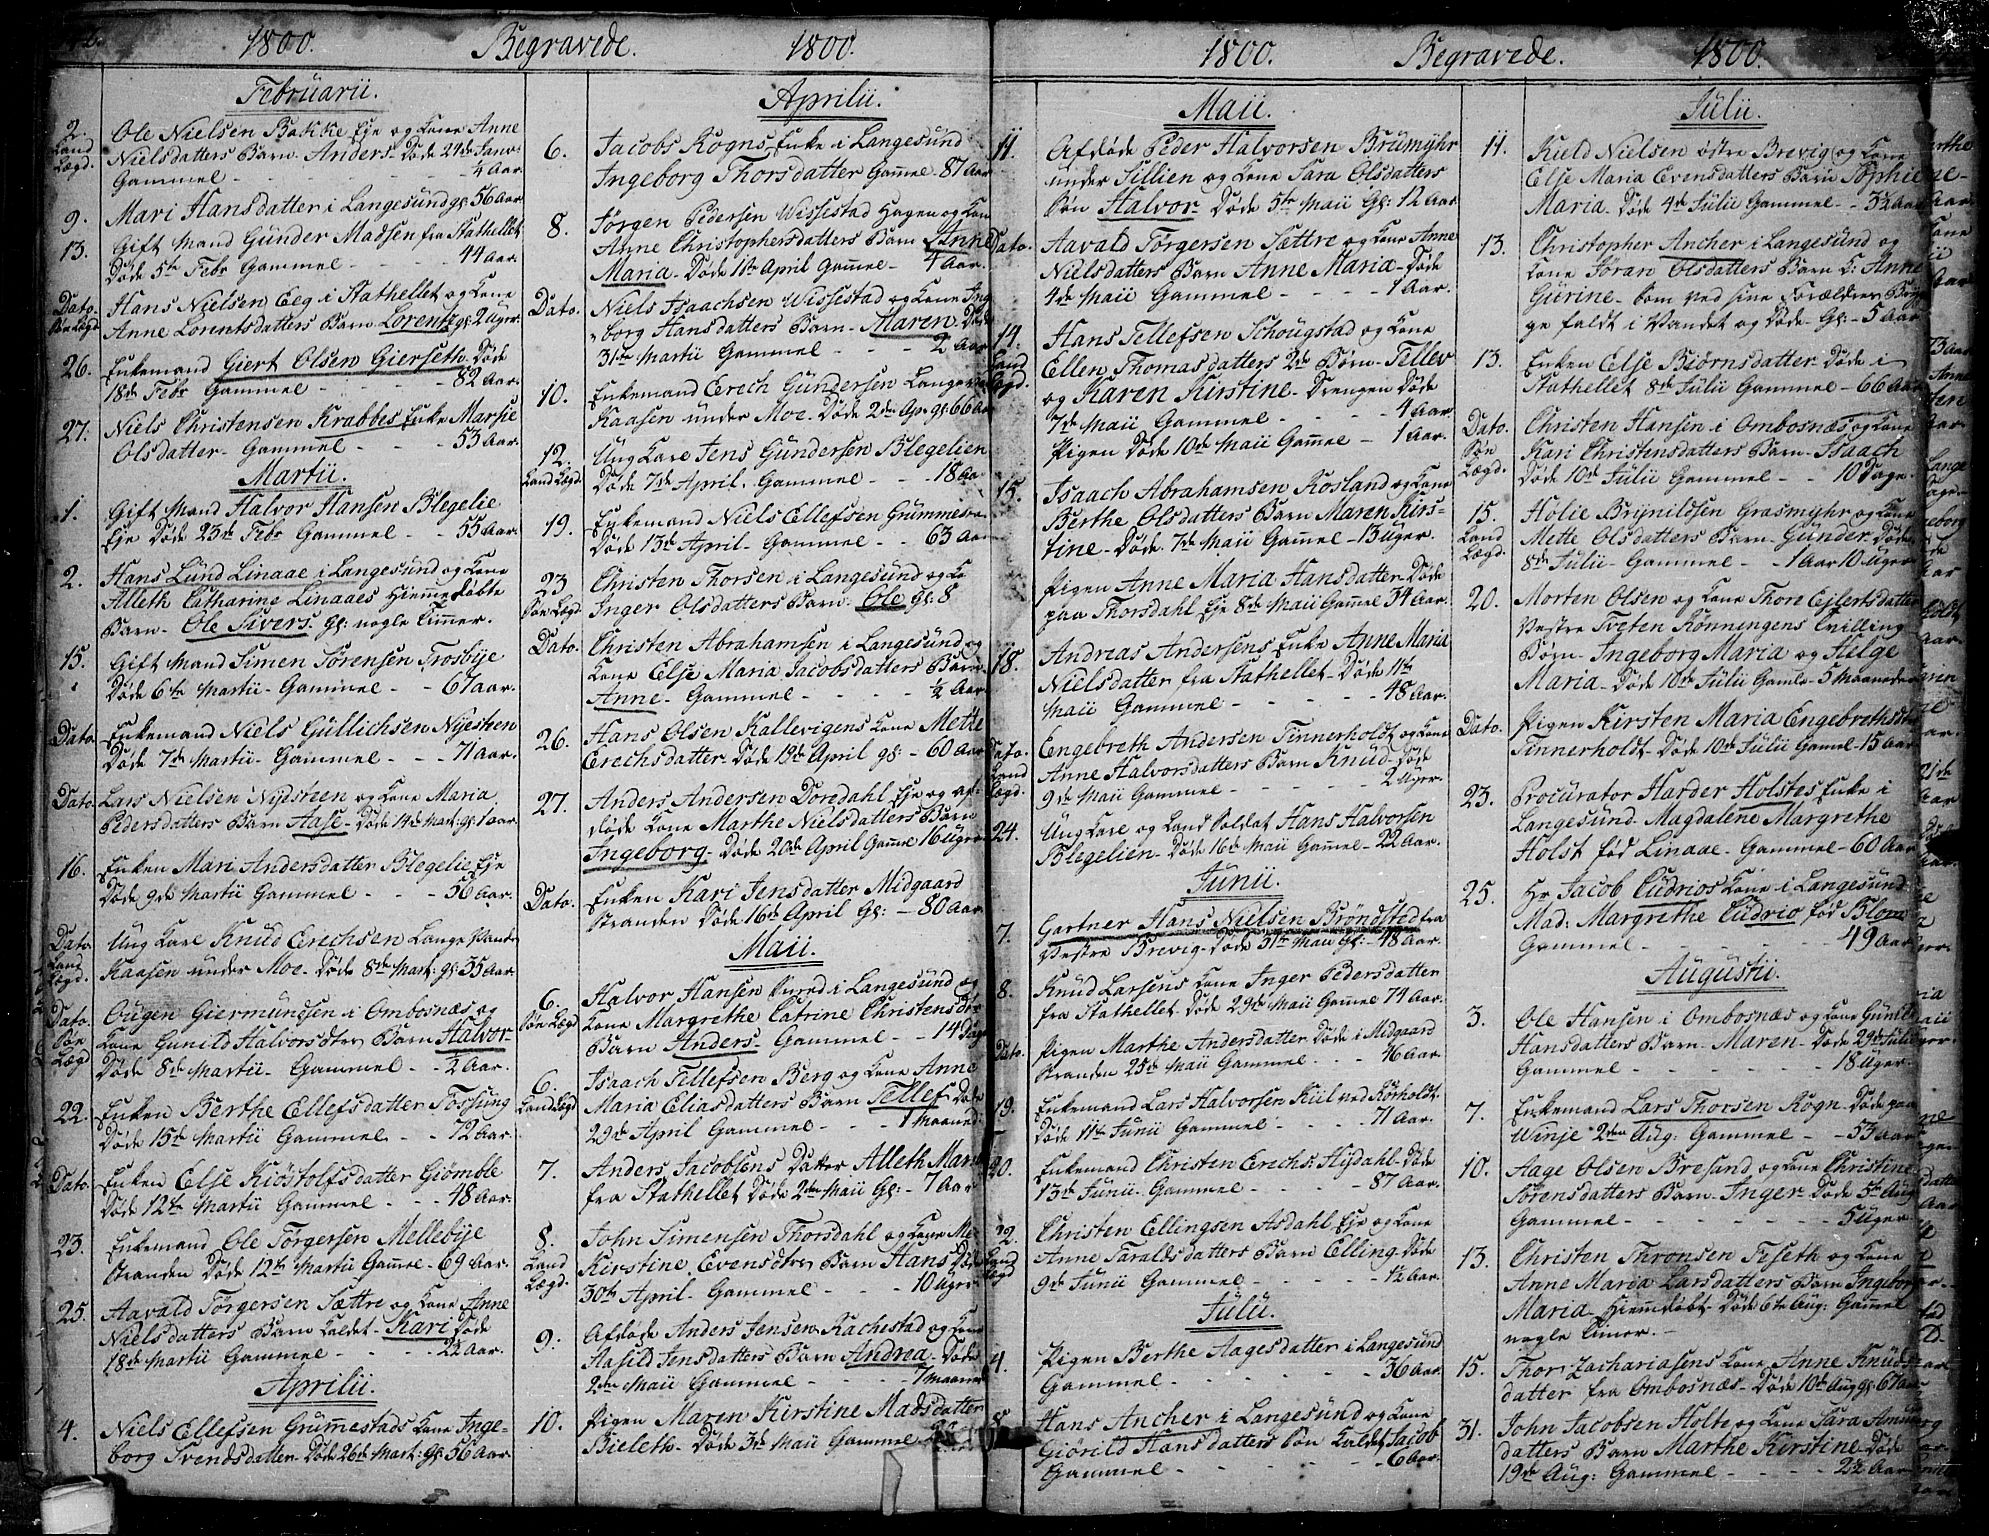 1800. Begravede. 1800.
Februarii.
2. Ole Nielsen Bakke Eje og Kone Anne
Land Nielsdatters Barn Anders. Døde 24de Janr
Lægd. Gammel - - - ¼ Aar.
9. Mari Hansdatter i Langesund gl: 56 Aar.
13. Gift Mand Gunder Madsen fra Stathellet
Døde 5te Febr Gammel - - 44 Aar.
Dato. Hans Nielsen Eeg i Stathellet og Kone
Søe Lægd Anne Lorentsdatters Barn Lorentz gl: 2 Uger.
26. Enkemand Giert Olsen Gierseth. Døde
18de Febr Gammel - - - 82 Aar.
27. Niels Christensen Krabbes Enke Marthe
Olsdatter Gammel - - 53 Aar.
Martii.
1. Gift Mand Halvor Hansen Blegelie
Eje Døde 23de Febr Gammel - - 53 Aar.
2. Hans Lund Linaae i Langesund og Kone
Alleth Catharine Linaaes Hiemmedøbte
Barn. Ole Sivers. gl: nogle Timmer.
15. Gift Mand Simen Sørensen Trosbije
Døde 6te Martii Gammel - - 67 Aar.
Dato Enkemand Niels Gullichsen Nijesteen
Døde 7de Martii Gammel - - 71 Aar.
Dato. Lars Nielsen Nijesteen og Kone Maria
Pedersdatters Barn Aase Døde 14de Mart: gl: 1 aar.
16. Enken Mari Andersdatter Blegelie Eje
Døde 9de Martii Gammel - - 56 Aar.
Dato. Ung Karl Knud Erechsen Lange Vand
Land Kaasen under Moe. Døde 8de Mart: gl: 35 Aar.
Lægd.
Dato. Ougen Giermundsen i Ombosnæs og
Søe Kone Gunild Halvorsdtrs Barn Halvor
Lægd Døde 8de Martii Gammel - - ½ Aar.
22. Enken Berthe Ellefsdatter Tossung
Døde 15de Martii Gammel - - 72 Aar.
Dato. Enken Else Kiøstolfsdatter Giømle
Døde 12te Martii Gammel - - 48 Aar.
23. Enkemand Ole Torgersen Mellebije
Stranden Døde 12te Martii Gamel 69 Aar.
25. Aavald Torgersen Sættre og Kone Anne
Nielsdatters Barn kaldet Kari Døde
18de Martii Gammel - - - 2½ Aar.
Aprilii.
4. Niels Ellefsen Grummestads Kone Inge-
borg Svendsdatter Døde 26de Mart: gl: 56 Aar.
Aprilii.
6. Jacobs Rogns Enke i Langesund
Ingeborg Thorsdatter Gamel 87 Aar
8. Jørgen Pedersen Wissestad Hagen og Kone
Anne Christophersdatters Barn Anne
Maria Døde 1ste April Gamel - 4 Aar.
Dato. Niels Isaachsen Wissestad og Kone Ing
borg Hansdatters Barn Maren Døde
31te Martii Gammel - - 2 Aar
10. Enkemand Erech Gundersen Langevan
Kaasen under Moe. Døde 2den Apr. gl: 66 Aar
12. Ung Karl Jens Gundersen Blegelien
Land Lægd. Døde 7de April. Gammel - - 18 Aar
19. Enkemand Niels Ellefsen Grummesta
Døde 13de April Gammel - - 63 Aar
23 Christen Thorsen i Langesund og Ko
Søe Lægd. Inger Olsdatters Barn Ole gl: 8
Dato. Christen Abrahamsen i Langesund og
Kone Else Maria Jacobsdatters Barn
Anne Gammel - - - ½ Aar.
26. Hans Olsen Kallevigens Kone Mette
Erechsdatter Døde 19de April gl: 60 Aar
27. Anders Andersen Doredahl Eje og af-
døde Kone Marthe Nielsdatters Barn
Ingeborg. Døde 20de April Gamel 16 Uger
Dato. Enken Kari Jensdatter Midgaard
Stranden Døde 16de April Gl: 80 Aar.
Maii.
6. Halvor Hansen i Langesund og
Søe Lægd Kone Margrethe Catrine Christensdtrs
Barn Anders. Gammel - - 14 Dage
6. Isaach Tellefsen Berg og Kone Anne
Land Lægd Maria Eliasdatters Barn Tellef Døde
29de April Gammel - - 1 Maaned.
7. Anders Jacobsens Datter Alleth Maria
fra Stathellet Døde 2den Maii Gl: 7 Aar
8. John Simensen Thorsdahl og Kone
Land Kirstine Evensdtrs Barn Hans Døde
Lægd. 30te April Gammel - - 10 Uger
9. Afdøde Anders Jensen Rachestad og Kone
Aasild Jensdatters Barn Andrea Døde
2den Maii Gammel - - - 7 Maaneder
10. Pigen Maren Kirstine Madsdatter
Bieleth. Døde 3de Maii Gammel
1800. Begravede. 1800.
Maii.
11. Afdøde Peder Halvorsen Brumyhr
under Tillien og Kone Sara Olsdatters
Søn Halvor Døde 5te Maii Gl: 12 Aar.
Dato. Aavald Torgersen Sættre og Kone Anne
Nielsdatters Barn Anne Maria Døde
4de Maii Gammel - - - 1 Aar.
14. Hans Tellefsen Schougstad og Kone
Land Ellen Thomasdatters 2de Børn Tellev
Lægd. og Karen Kirstine Drengen Døde
7de Maii Gammel - - - 4 Aar.
Pigen Døde 10de Maii Gamel - 1 Aar.
15. Isaach Abrahamsen Rosland og Kone
Berthe Olsdatters Barn Maren Kirs-
tine Døde 7de Maii Gamel 13 Uger.
Pigen Anne Maria Hansdatter Døde
paa Thorsdahl Eje 8de Maii Gamel 34 Aar.
18. Andreas Andersens Enke Anne Maria
Nielsdatter fra Stathellet Døde 11te
Maii Gammel - - - 48 Aar.
Dato. Engebreth Andersen Tinnerholdt og Kone
Land Anne Halvorsdatters Barn Knud Døde
Lægd. 9de Maii Gammel - - - 2 Uger.
24. Ung Karl og Land Soldat Hans Halvorsen
Blegelien Døde 16de Maii Gamel 22 Aar.
Junii.
7. Gartner Hans Nielsen Brøndsted fra
Vestre Brevig Døde 31te Maii Gl: 48 Aar.
8. Knud Larsens Kone Inger Pedersdatter
fra Stathellet Døde 29de Maii Gamel 74 Aar.
Dato. Pigen Marthe Andersdatter Døde i Midgaard
Stranden 25de Maii Gammel - - - 46 Aar.
19. Enkemand Lars Halvorsen Kiil ved Rørholdt.
Døde 11te Junii Gammel - - - 71 Aar.
20. Enkemand Christen Erechs: Hijdahl Døde
13de Junii Gammel - - - 87 Aar.
22. Christen Ellingsen Asdahl Eje og Kone
Land Anne Taraldsdatters Barn Elling Døde
Lægd 9de Junii Gammel - - - 1½ Aar.
Julii.
4. Pigen Berthe Aagesdatter i Langesund
Gammel - - - 36 Aar.
8. Hans Ancher i Langesund og Kone
Giørild Hansdatters Søn kaldet Jacob
Gammel - - - 6 Aar.
Julii.
11. Kield Nielsen østre Brevig og Kone
Else Maria Evensdatters Barn Sophie
Maria Døde 4de Julii Gammel - 5½ Aar
13. Christopher Ancher i Langesund og
Kone Jøran Olsdatters Barn K: Anne
Gurine som ved sine Forældres Bryg-
ge faldt i Vandet og Døde Gl: 5 Aar
13. Enken Else Biørnsdatter Døde i
Stathellet 8de Julii Gammel 66 Aar
Dato. Christen Hansen i Ombosnæs og Kone
Søe Kari Christensdatters Barn Isaach
Lægd. Døde 10de Julii Gammel - - 10 Dage.
15. Holje Brijnildsen Grasmyhr og Kone
Land Mette Olsdatters Barn Gunder Døde
Lægd. 8de Julii Gammel - 1 Aar 10 Uger
20. Morten Olsen og Kone Thore Ejlertsdatter
Vestre Tveten Rønningens Tvilling
Børn Ingeborg Maria og Helge
Maria Døde 10de Julii Gamle 5 Maaneder
Dato. Pigen Kirsten Maria Engebrethsdtr
Tinnerholdt Døde 10de Julii Gamel 15 Aar
23. Procurator Harder Holstes Enke i
Langesund Magdalene Margrethe
Holst fød Linaae Gammel 60 Aar
25. Hr Jacob Cudrios Kone i Langesund
Mad: Margrethe Cudrio fød Blom
Gammel - - - 49 Aar
Augustii.
3. Ole Hansen i Ombosnæs og Kone Gunild
Hansdatters Barn Maren Døde 29de Julii
Gammel - - - 18 Uger.
7. Enkemand Lars Thorsen Rogn Døde paa
Winje 2den Aug: Gammel - 53 Aar
10. Aage Olsen Bresand og Kone Christine
Sørensdatters Barn Inger Døde 5te Aug
Gammel - - - 5 Uger
13. Christen Thronsen Fiseth og Kone
Anne Maria Larsdatters Barn Ingeborg
Maria Hiemdøbt Døde 6te Aug: Gamel
nogle Timer.
15. Thor Zachariasens Kone Anne Knuds
datter fra Ombosnæs Døde 10de Aug gl: 67 Aar
31. John Jacobsen Holte og Kone Sara
datters Barn Marthe Kirstine Døde
19de Aug: Gammel - - - 2½ Aar